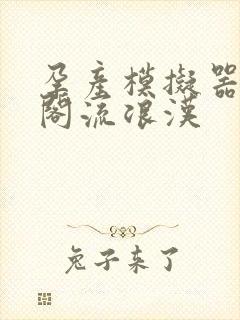 孕產模擬器
閣流浪漢
兔子来了